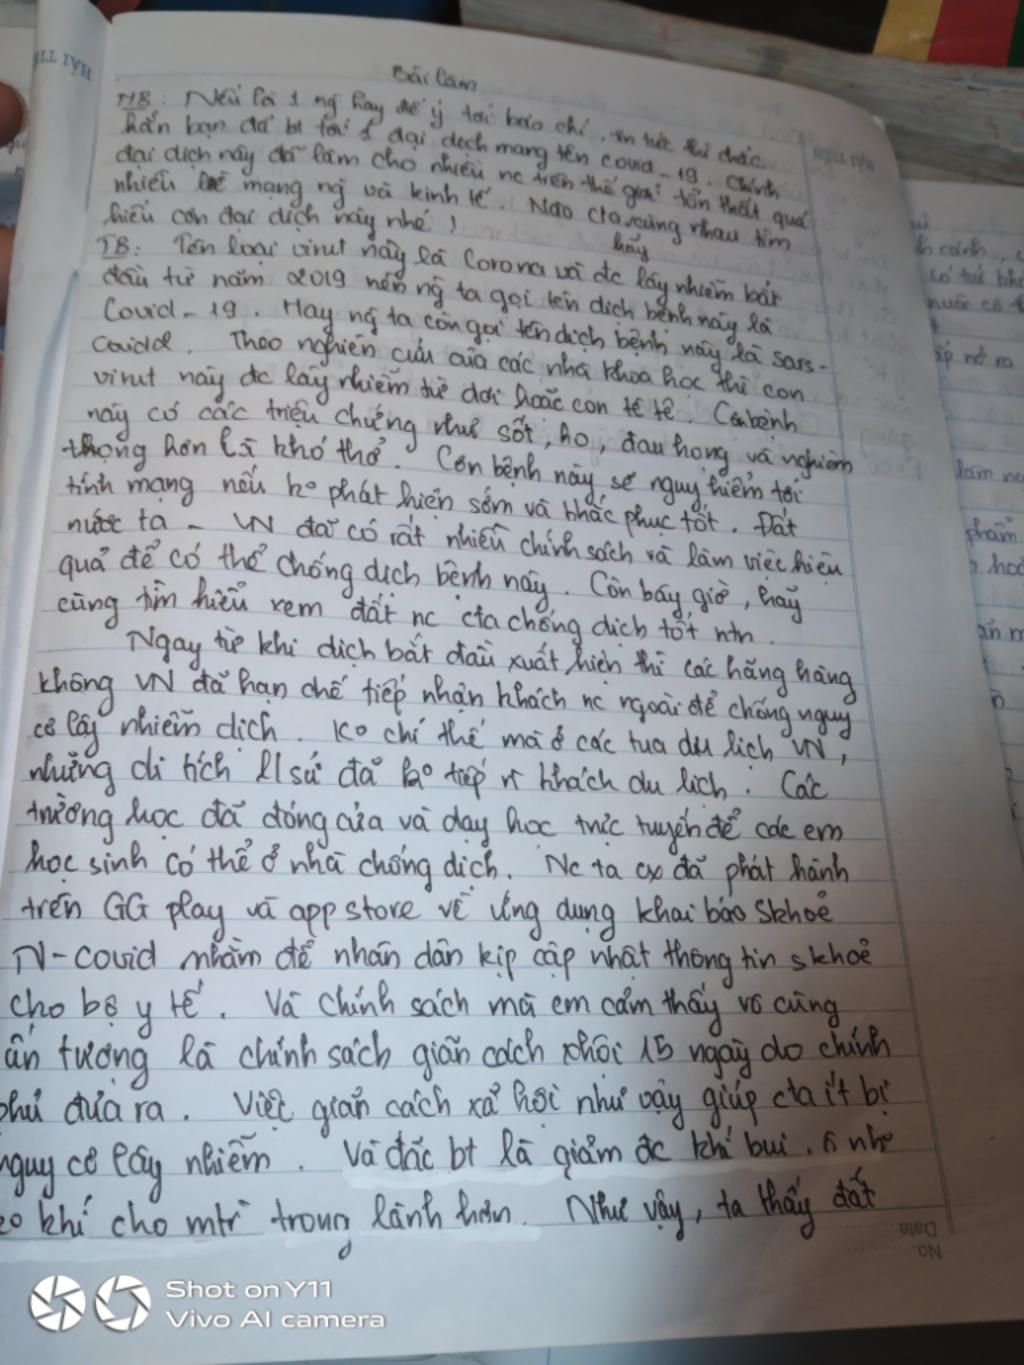 HẢI TIẾ
Bài làm
MB: Nếu là 1 ng hay để ý tới báo chí, tin tức thì chắc
hẳn bạn đã bt tới 1 đại dịch mang tên covid-19. Chính
đại dịch này đã làm cho nhiều nc trên thế giới tổn thất quá
nhiều mạng ng và kinh tế. Nào cta cùng nhau tìm
hiểu con đại dịch này nhé!
hãy
TB: Tên loại virut này là Corona và đc lây nhiễm bắt
đầu từ năm 2019 nên ng ta gọi tên dịch bệnh này là
Covid-19. Hay ng ta còn gọi tên dịch bệnh này là sars-
Theo nghiên cứu của các nhà khoa học thì con
virut này đc lây nhiễm từ dơi hoặc con tê tê. Cơn bệnh
này có các triệu chứng như sốt, ho, đau họng và nghiêm
trọng hơn là khó thở. Cơn bệnh này sẽ nguy hiểm tới
tính mạng nếu ko phát hiện sớm và khắc phục tốt. Đất
nước ta - VN đã có rất nhiều chính sách và làm việc hiệu
quả để có thể chống dịch bệnh này. Còn bây giờ, hãy
cùng tìm hiểu xem đất nc cta chống dịch tốt ntn.
Ngay từ khi dịch bắt đầu xuất hiện thì các hãng hàng
không VN đã hạn chế tiếp nhận khách nc ngoài để chống nguy
cơ lây nhiễm dịch. Ko chỉ thế mà ở các tua du lịch VN,
những di tích lsử đã ko tiếp khách du lịch. Các
trường học đã đóng cửa và dạy học trực tuyến để các em
học sinh có thể ở nhà chống dịch. Nc ta cx đã phát hành
trên GG play và app store về ứng dụng khai báo skhoẻ
N-Covid nhằm để nhân dân kịp cập nhật thông tin skhoẻ
cho bộ y tế. Và chính sách mà em cảm thấy vô cùng
ấn tượng là chính sách giãn cách xhội 15 ngày do chính
phủ đưa ra. Việc giãn cách xã hội như vậy giúp cta ít bị
nguy cơ lây nhiễm. Và đặc bt là giảm đc khí bụi, ô nh
ko khí cho mtr trong lành hơn. Như vậy, ta thấy đất
No.
Date
Shot on Y11
Vivo AI camera